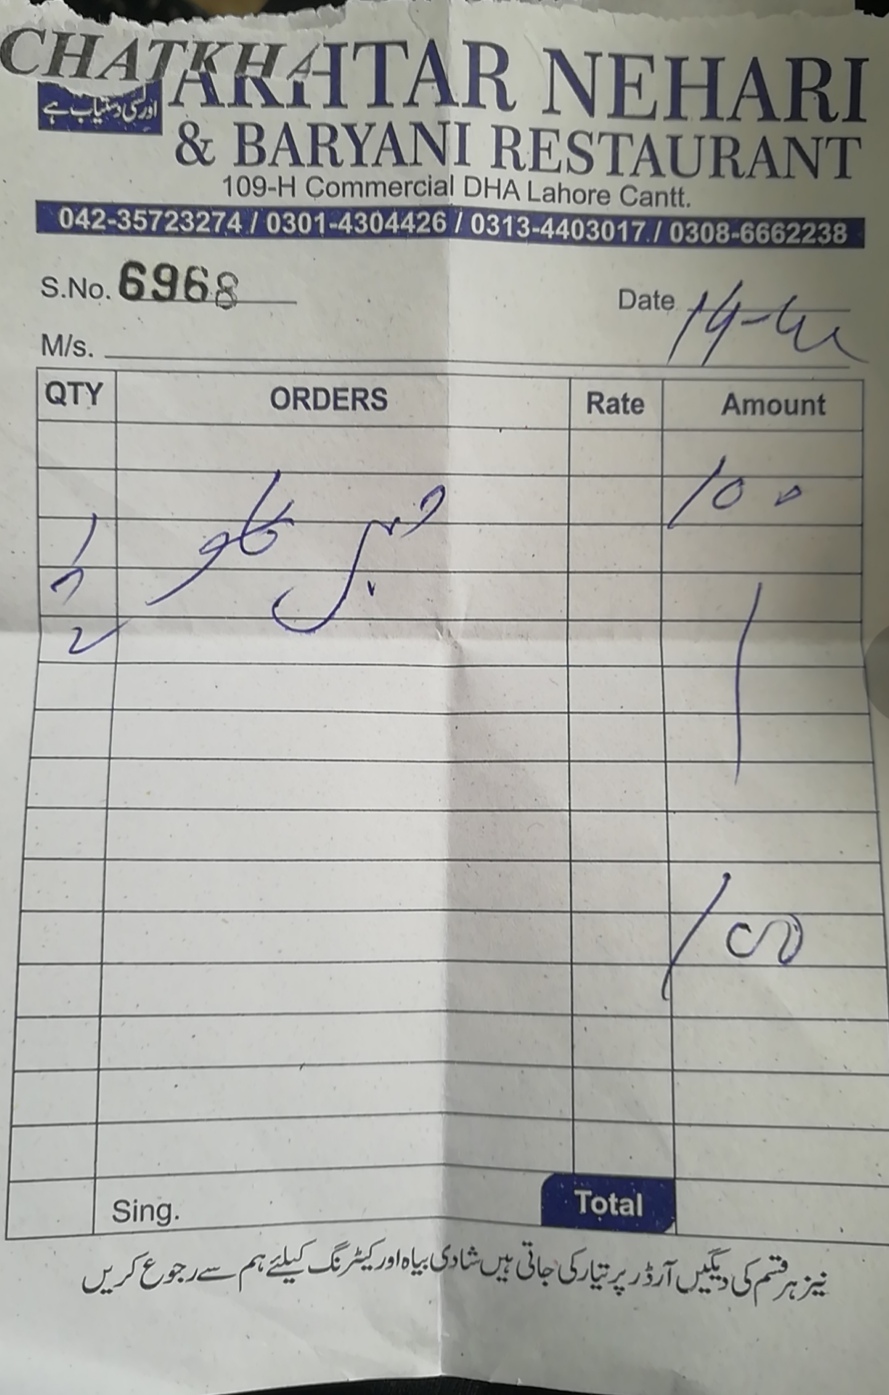 CHATKHA
AKHTAR NEHARI
اور لسی دستیاب ہے
& BARYANI RESTAURANT
109-H Commercial DHA Lahore Cantt.
042-35723274 / 0301-4304426 / 0313-4403017 / 0308-6662238
S.No. 6968
Date
M/s.
QTY ORDERS Rate Amount
100
100
Sing. Total
نیز ہر قسم کی دیگیں آرڈر پر تیار کی جاتی ہیں شادی بیاہ اور کیٹرنگ کیلئے ہم سے رجوع کریں